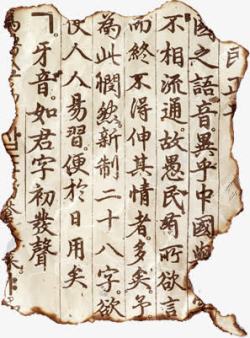 國之語音。異乎中國
不相流通。故愚民有所欲言
而終不得伸其情者。多矣。予
為此憫然新制二十八字欲
使人人易習。便於日用矣
ㄱ。牙音。如君字初發聲